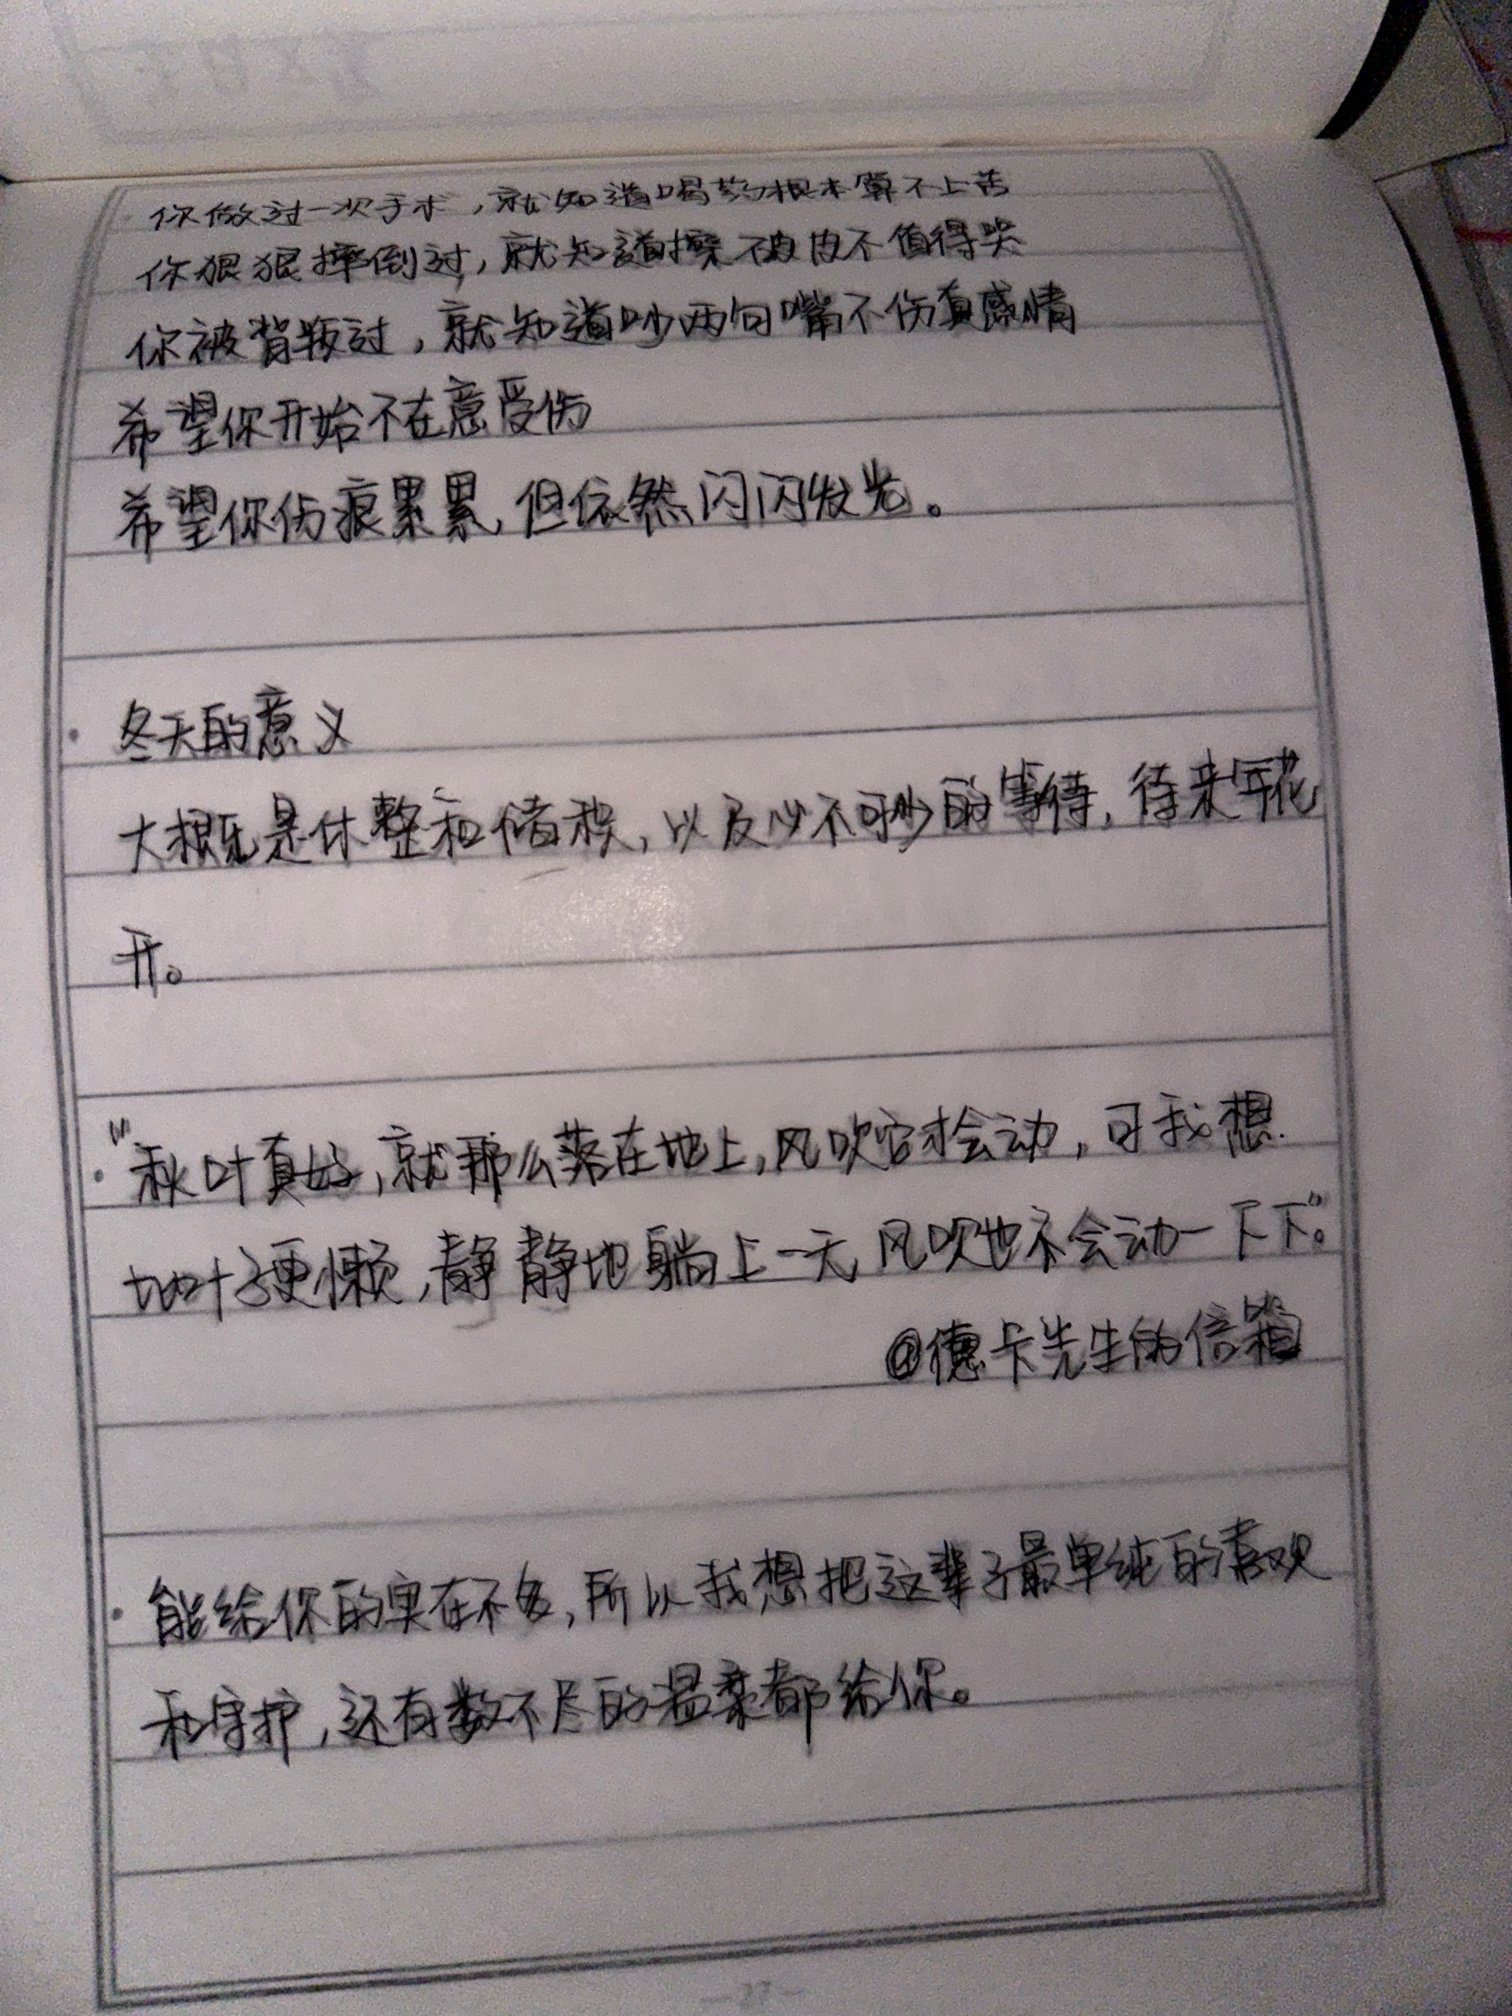 你做过一次手术，就知道喝药根本算不上苦
你狠狠摔倒过，就知道擦破皮不值得哭
你被背叛过，就知道吵两句嘴不伤真感情
希望你开始不在意受伤
希望你伤痕累累，但依然闪闪发光。
冬天的意义
大概是休整和储积，以及必不可少的等待，待来年花
开。
“秋叶真好，就那么落在地上，风吹它才会动，可我想
比叶子更懒，静静地躺上一天，风吹也不会动一下下”。
@德卡先生的信箱
能给你的实在不多，所以我想把这辈子最单纯的喜欢
和守护，还有数不尽的温柔都给你。
—27—